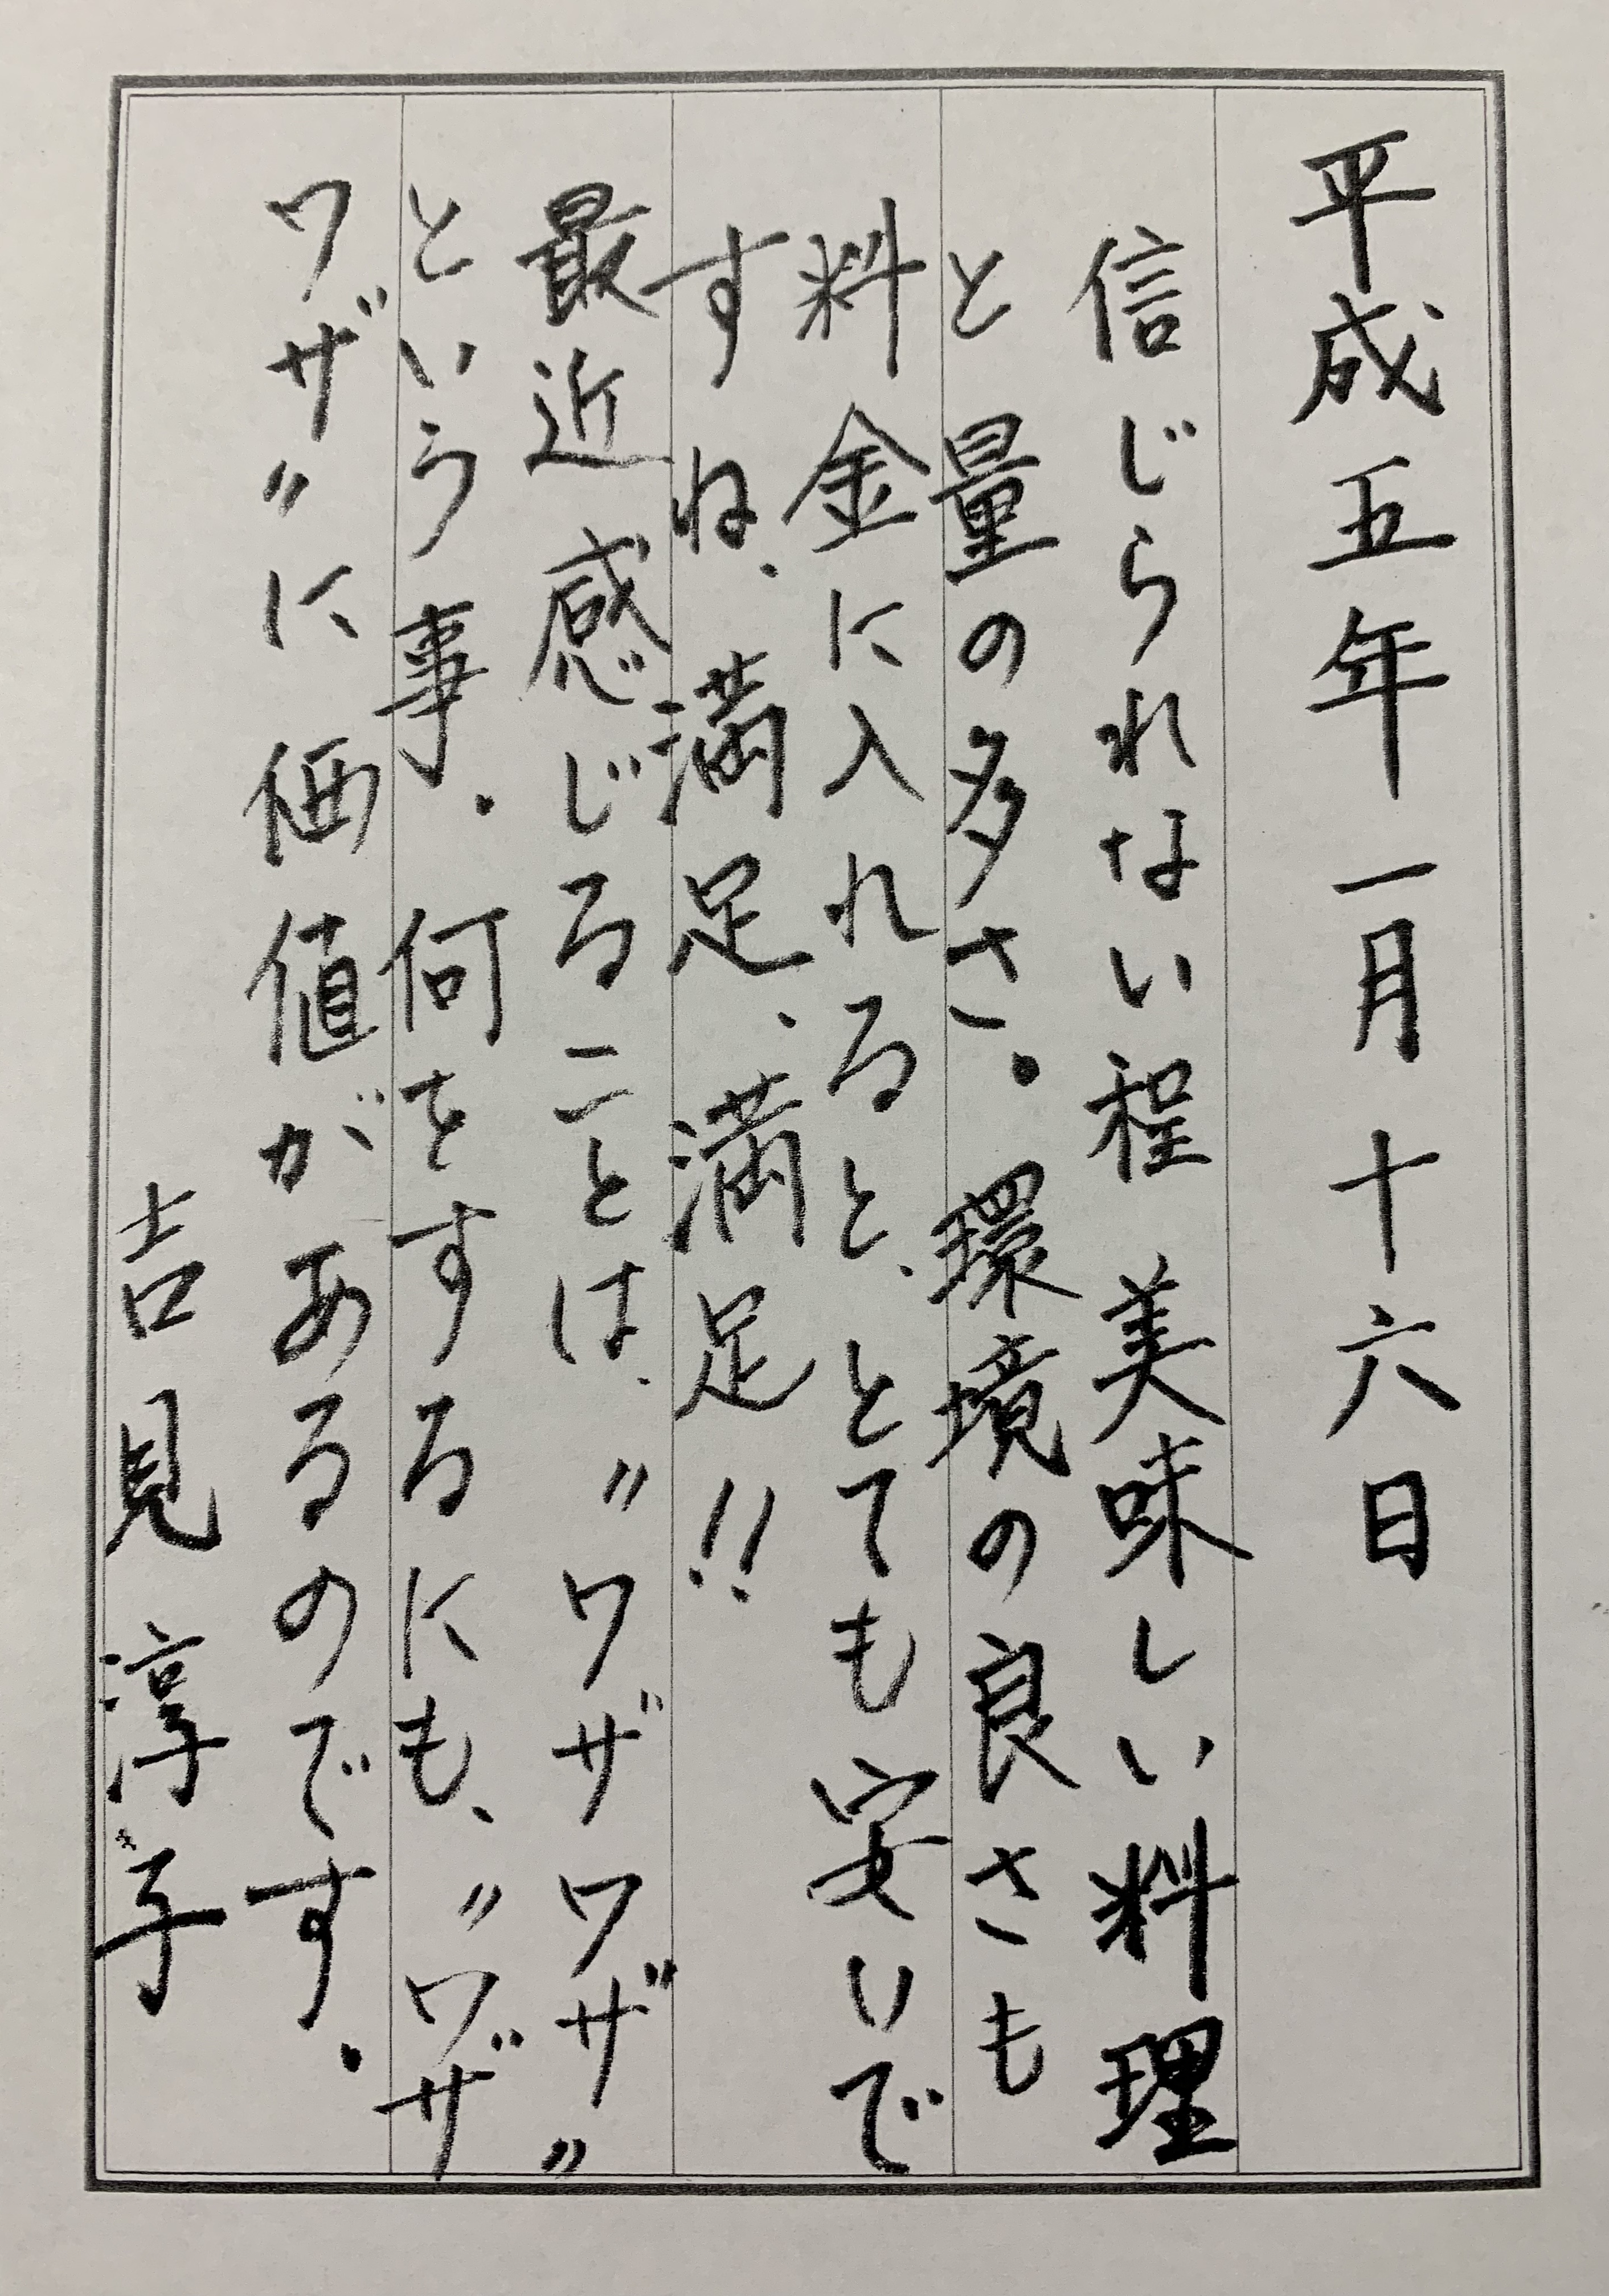 平成五年一月十六日
信じられない程美味しい料理
と量の多さ。環境の良さも
料金に入れると、とても安いで
すね、満足、満足!!
最近感じることは、〃ワザワザ〃
という事。何をするにも、〃ワザ
ワザ〃に価値があるのです。
吉見淳子